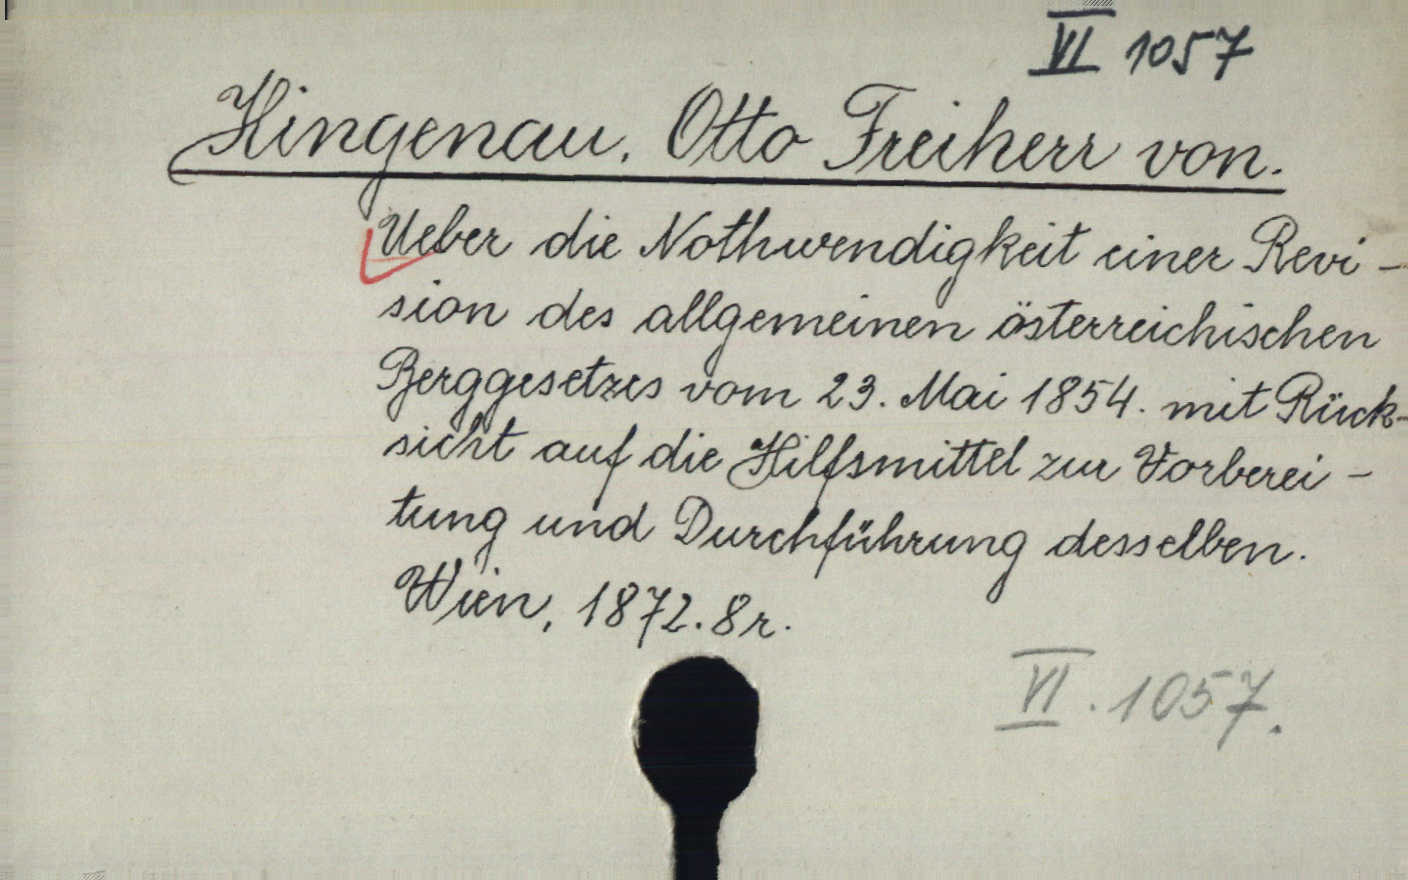 VI 1057
Hingenau, Otto Freiherr von.
Ueber die Nothwendigkeit einer Revi-
sion des allgemeinen österreichischen
Berggesetzes vom 23. Mai 1854. mit Rück-
sicht auf die Hilfsmittel zur Vorberei-
tung und Durchführung desselben.
Wien, 1872. 8r.
VI. 1057.